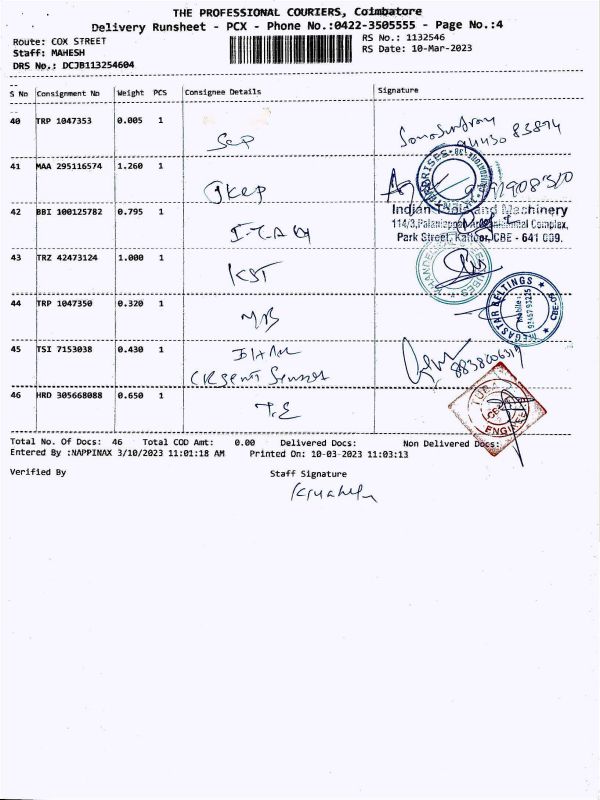 THE PROFESSIONAL COURIERS, Coimbatore
Delivery Runsheet - PCX - Phone No.:0422-3505555 - Page No.:4
Route: COX STREET
RS No.: 1132546
Staff: MAHESH
RS Date: 10-Mar-2023
DRS No.: DCJB113254604
S No Consignment No Weight PCS Consignee Details Signature
40 TRP 1047353 0.005 1
83894
41 MAA 295116574 1.260 1
42 BBI 100125782 0.795 1
Indian Tools and Machinery
Complex,
Park Street, Kattoor, CBE - 641 009.
43 TRZ 42473124 1.000 1
KST
44 TRP 1047350 0.320 1
MEGASTAR BELTINGS
Mobile :
45 TSI 7153038 0.430 1
46 HRD 305668088 0.650 1
T.E
Total No. Of Docs: 46 Total COD Amt: 0.00 Delivered Docs: Non Delivered Docs:
Entered By :NAPPINAX 3/10/2023 11:01:18 AM Printed On: 10-03-2023 11:03:13
Verified By Staff Signature